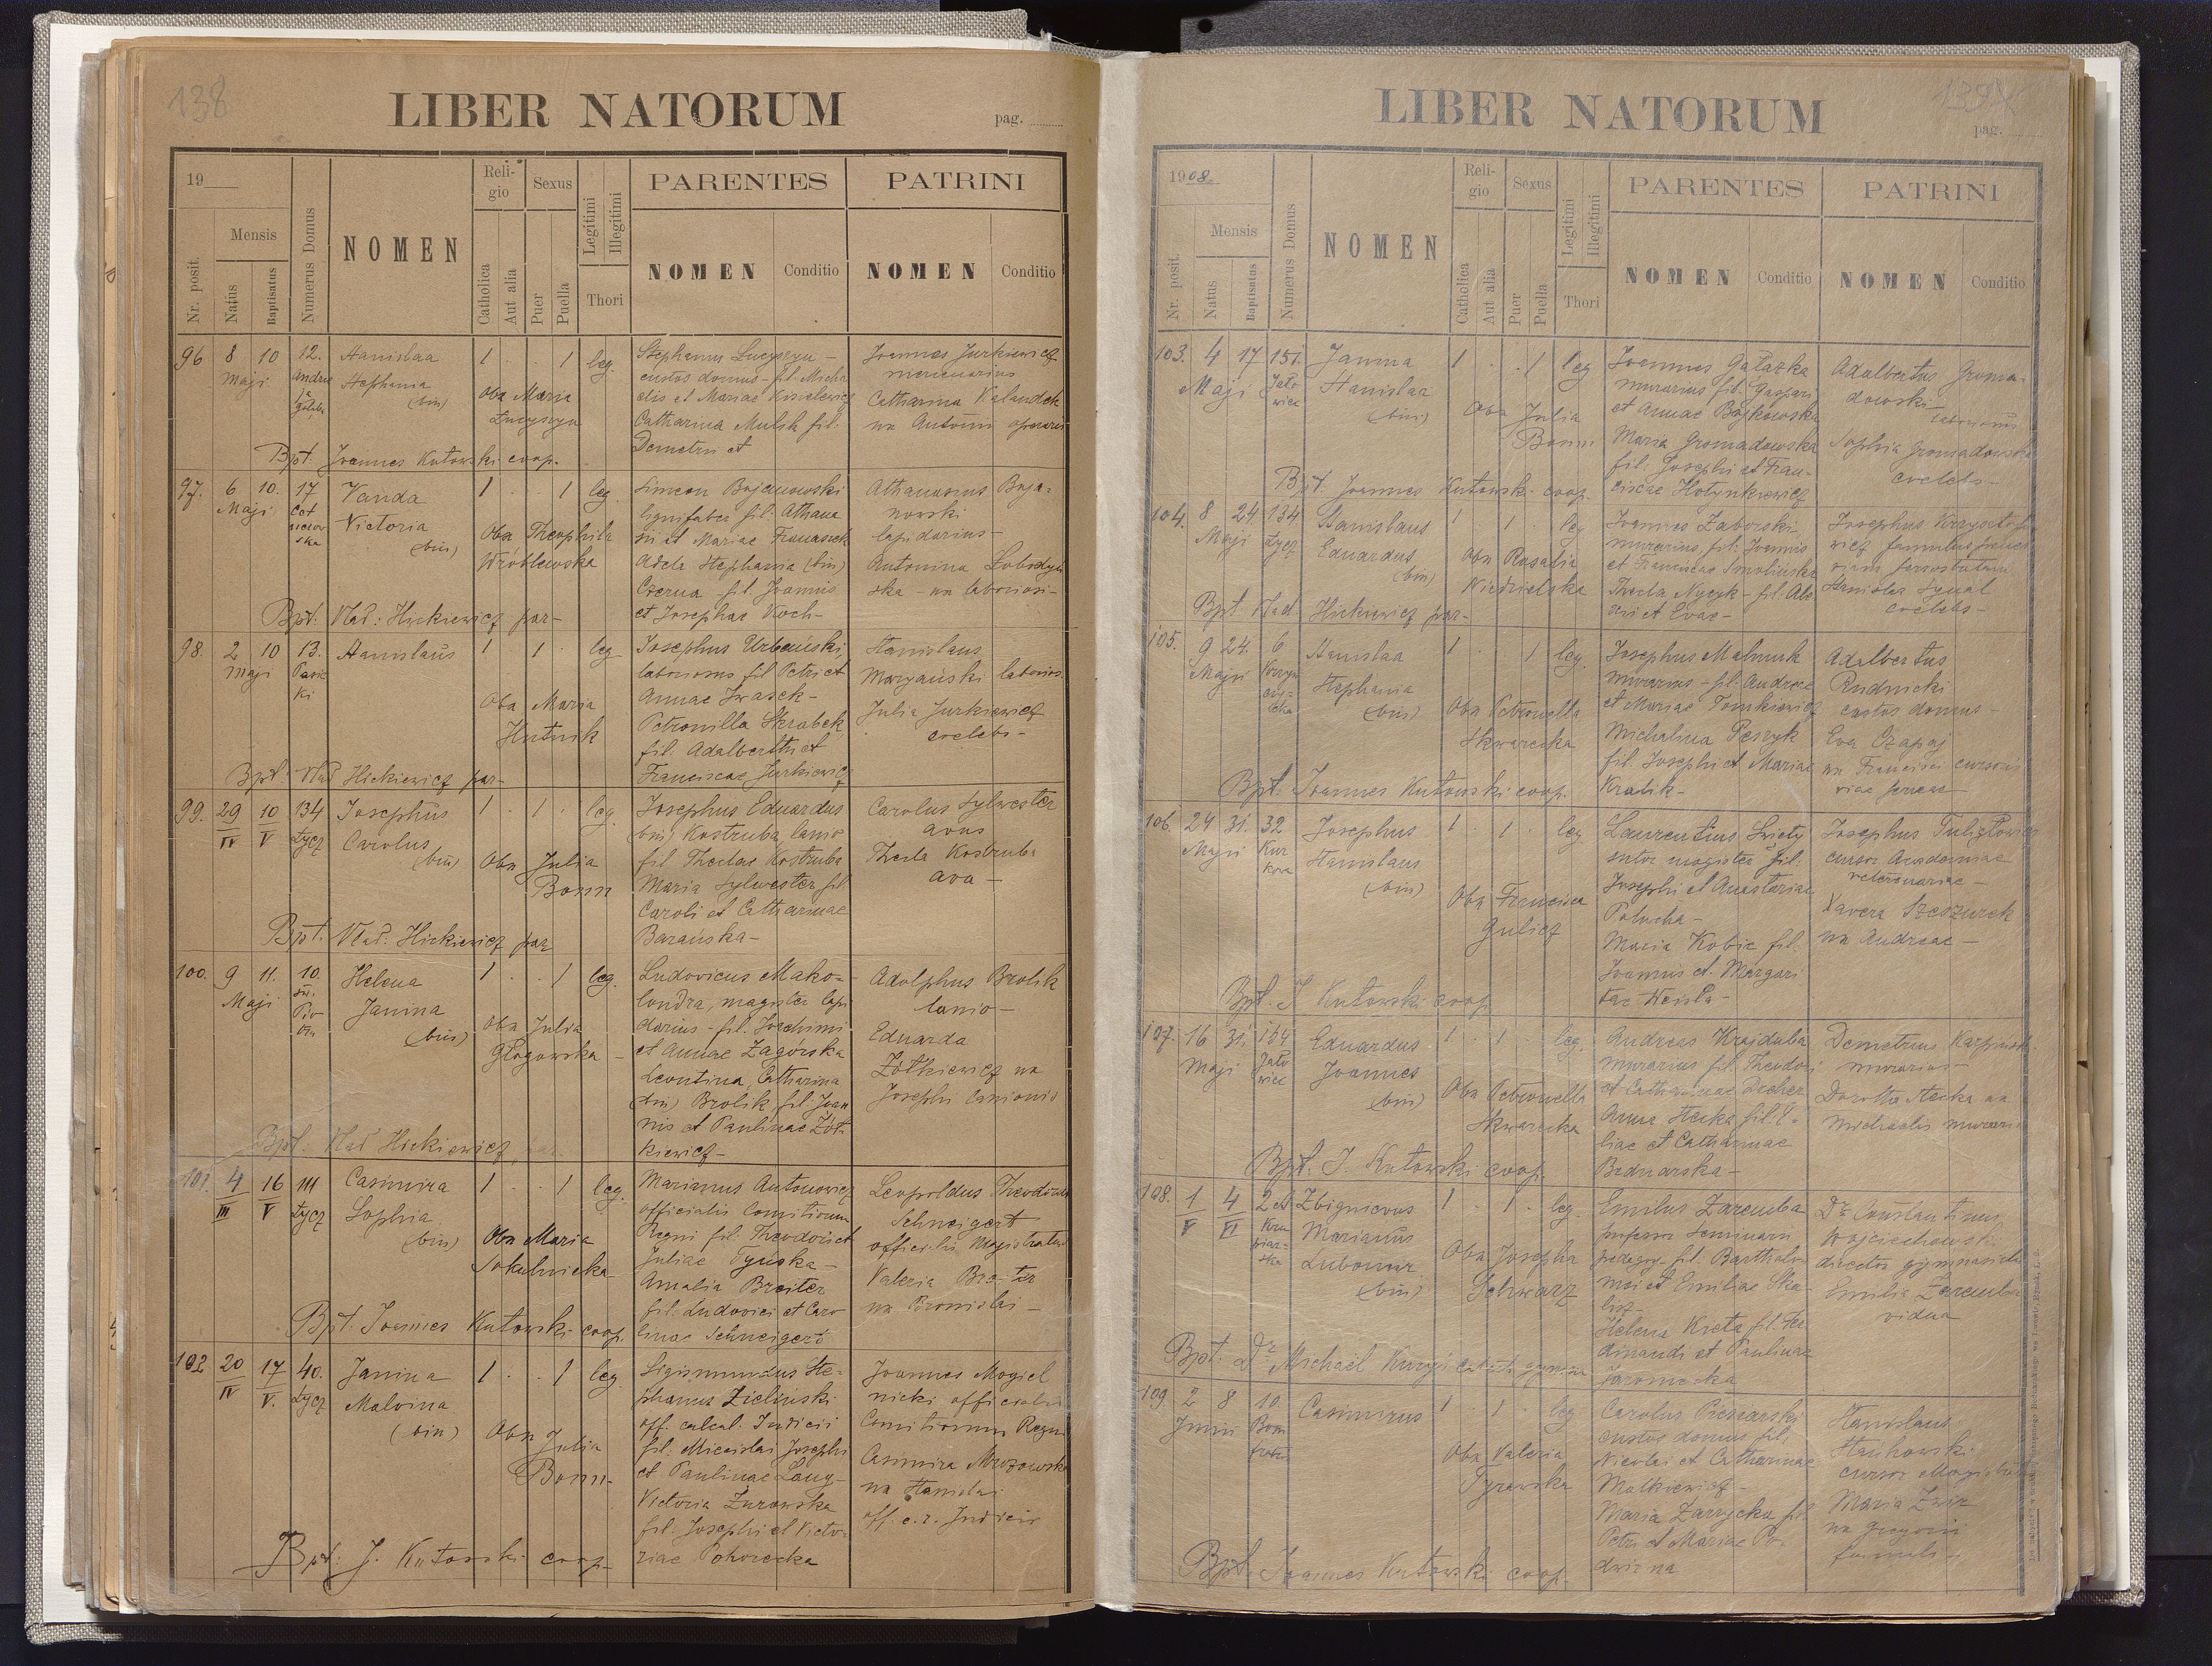 138
LIBER NATORUM
pag.
19
Nr. posit.
Mensis
Natus
Baptisatus
Numerus Domus
NOMEN
Religio
Catholica
Aut alia
Sexus
Puer
Puella
Legitimi
Illegitimi
Thori
PARENTES
NOMEN
Conditio
PATRINI
NOMEN
Conditio
96 8 10 12. Stanislaa 1 . . 1 leg.
Maji
Stephania
(bin)
Oba Maria
Bpt. Joannes Kutowski coop.
Stephanus
custos domus - fil. Micha
elis et Mariae
Catharina fil.
Demetrii et
Joannes Jurkiewicz
mercenarius
Catharina Kalandek
ux Antonii
97. 6 10. 17 Vanda 1 . . 1 leg.
Maji
Victoria
(bin)
Oba Theophila
Wróblewska
Bpt. Vlad: Hickiewicz par-
Simeon Bojanowski
lignifaber fil. Athana
sii et Mariae
Adela Stephania (bin)
Czerna fil. Joannis
et Josephae Koch-
Athanasius Boja-
nowski
lapidarius-
Antonina
ska - ux laboriosi-
98. 2 10 13. Stanislaus 1 1 . leg
Maji
Oba Maria
Hutnik
Bpt. Vlad Hickiewicz par-
Josephus Urbański
laboriosus fil Petri et
Annae Iwasek-
Petronilla Skrabek
fil. Adalberthi et
Franciscae Jurkiewicz
Stanislaus
Maryański laborios.
Julia Jurkiewicz
coelebs-
99. 29 10 134 Josephus 1 . 1 . leg.
IV V Łycz Carolus
(bin)
Oba Julia
Bonn
Bpt. Vlad: Hickiewicz par
Josephus Eduardus
(bin) Kostruba lanio
fil Theclae Kostruba
Maria Sylwester fil
Caroli et Catharinae
Barańska-
Carolus Sylwester
avus
Thecla Kostruba
ava-
100. 9 11. 10. Helena 1 . . 1 leg.
Maji
Janina
(bin)
Oba Julia
Głogowska
Bpt. Vlad Hickiewicz par.
Ludovicus Mako-
londra, magister lapi
darius - fil. Joachimi
et Annae Zagórska
Leontina, Catharina
(bin) Brolik fil. Joan
nis et Paulinae Żół-
kiewicz-
Adolphus Brolik
lanio-
Eduarda
Żółkiewicz ux
Josephi lanionis
101. 4 16 111 Casimira 1 . . 1 leg.
III V Łycz Sophia
(bin)
Oba Maria
Sokulnicka
Bpt. Joannes Kutowski coop.
Marianus Antonowicz
officialis Comitiorum
Regni fil. Theodori et
Juliae Tyńska-
Amalia Breiter
fil. Ludovici et Caro
linae Schneigert
Leopoldus Theodorus
Schneigert
officialis Magistratus
Valeria Breiter
ux Bronislai-
102 20 17 40. Janina 1 . . 1 leg.
IV V. Łycz Malvina
(bin)
Oba Julia
Bonn-
Bpt: J. Kutowski coop-
Sigismundus Ste-
phanus Zieliński
off. calcul. Judicii
fil. Miecislai Josephi
et Paulinae Lang-
Victoria Żurowska
fil. Josephi et Victo-
riae Pohorecka
Joannes Mogiel
nicki officialis
Comitiorum Regni
Casimira Mrozowska
ux Stanislai
off. c.r. Judicii
139
LIBER NATORUM
pag.
1908.
Nr. posit.
Mensis
Natus
Baptisatus
Numerus Domus
NOMEN
Religio
Catholica
Aut alia
Sexus
Puer
Puella
Legitimi
Illegitimi
Thori
PARENTES
NOMEN
Conditio
PATRINI
NOMEN
Conditio
103. 4 17 151. Janina 1 . . 1 leg
Maji Jało
wiec
Stanislaa
(bin)
Oba Julia
Bonn
Bpt. Joannes Kutowski coop.
Joannes Gałazka
murarius fil. Gaspari
et Annae Bojkowska
Maria Gromadowska
fil. Josephi et Fran-
ciscae Hotynkiewicz
Adalbertus Groma-
dowski
laboriosus
Sophia Gromadowska
coelebs-
104. 8 24. 134 Stanislaus 1 . 1 . leg
Maji Łycz
Eduardus
(bin)
Oba Rosalia
Niedzielska
Bpt. Vlad. Hickiewicz par-
Joannes Zaborski
murarius, fil. Joannis
et Franciscae Smolińska
Thecla Nyczyk - fil. Ale
xii et Evae-
Josephus Krzyszto
wicz famulus
Stanislaa
coelebs-
105. 9 24. 6 Stanislaa 1 . 1 leg.
Maji
Stephania
(bin)
Oba Petronella
Skwarecka
Bpt. Joannes Kutowski coop.
Josephus
murarius - fil. Andreae
et Mariae Tomkiewicz
Michalina Peszyk
fil. Josephi et Mariae
Kralik-
Adalbertus
Rudnicki
custos domus-
Eva Czapaj
ux Francisci cursoris
viae ferreae-
106. 24 31. 32 Josephus 1 . 1 . leg
Maji Kur
kowa
Stanislaus
(bin)
Oba Francisca
Gulicz
Bpt. J Kutowski coop
Laurentius Święty
sutor magister fil.
Josephi et Anastasiae
Połucha-
Maria Kobie fil.
Joannis et Margari
tae
Josephus
cursor Academiae
veterinariae-
Xavera Szeszurek
ux Andreae-
107. 16 31. 154 Eduardus 1 . 1 . leg.
Maji Jało
wiec
Joannes
(bin)
Oba Petronella
Skwarecka
Bpt. J. Kutowski coop.
Andreas Krajduba
murarius fil. Theodori
et Catharinae Decher
Anna Stecka fil. E-
liae et Catharinae
Bednarska-
Demetrius Karpiński
murarius-
Dorotha Stecka ux
Michaelis murarii
108. 1 4 Zbignievus 1 . 1 . leg.
V VI
Marianus
Lubomir
(bin)
Oba Josepha
Schwarz
Bpt: Dr Michaël
Emilus Zaremba
professor Seminarii
pedagog. fil. Bartholo-
maei et Emiliae Ska-
lisz-
Helena Kreta fil. Fer
dinandi et Paulinae
Jaromecka
Dr. Constantinus
Wojciechowski
director gymnasialis
Emilia Zaremba
vidua
109. 2 8 10. Casimirus 1 . 1 . leg
Junii
Oba Valeria
Pyrawska
Bpt. Joannes Kutowski coop.
Carolus Piesiarski
custos domus fil.
Nicolai et Catharinae
Małkiewicz-
Maria Zarzycka fil.
Petri et Mariae
Stanislaus
Stankowski
cursor Magistratus
Maria
ux Gregorii
famuli-